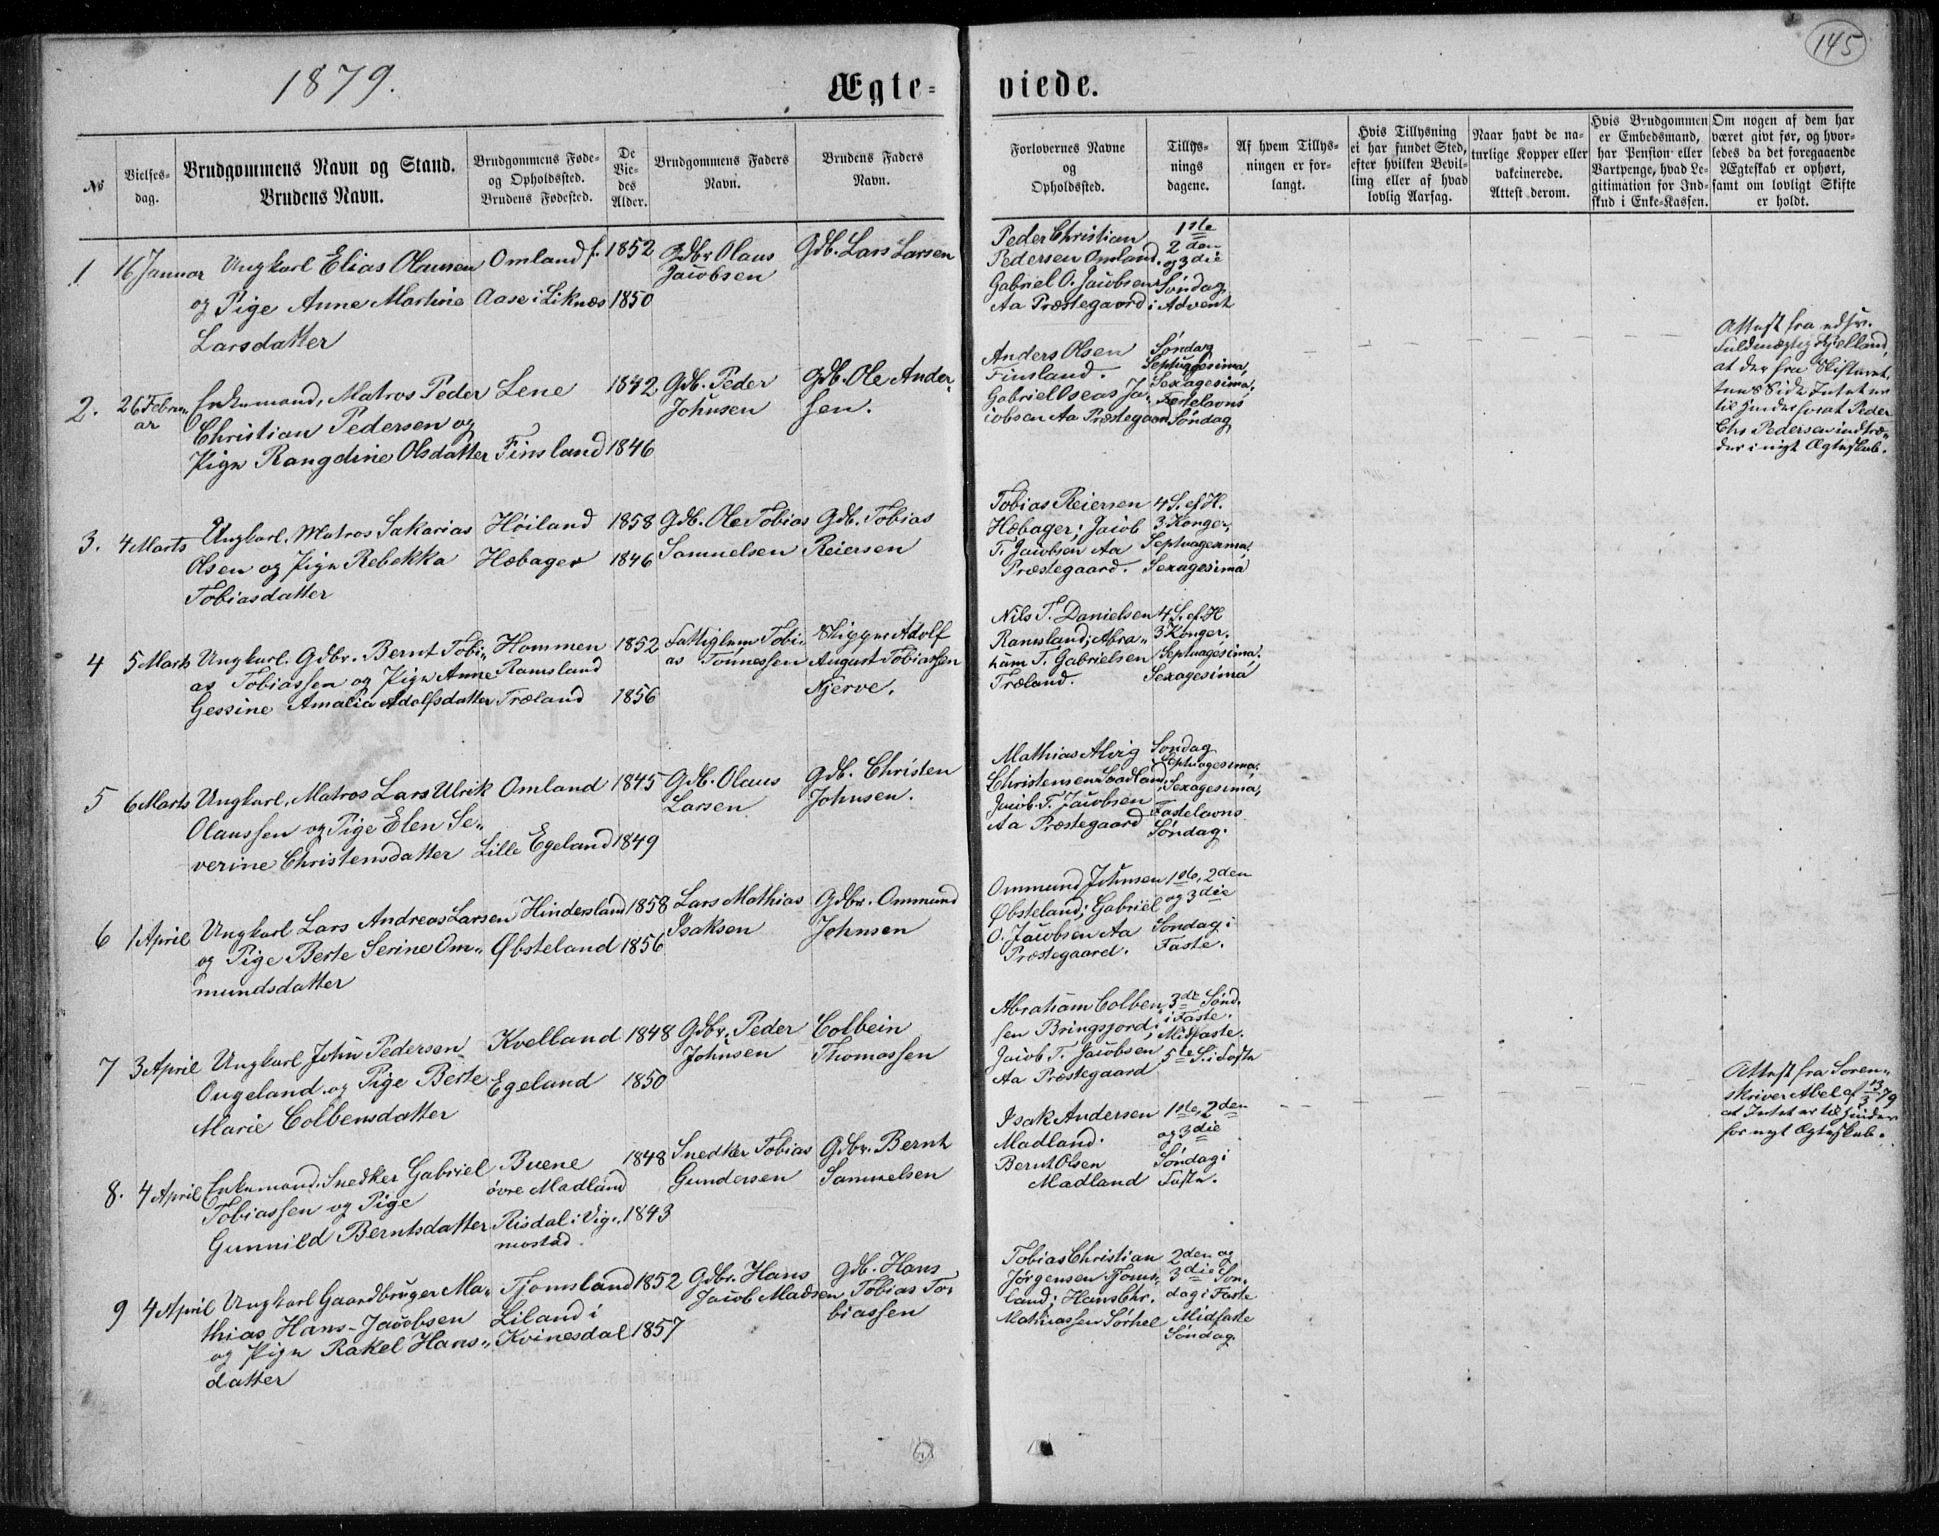 145
1879.
Ægte-
viede.
No
Vielses-
dag.
Brudgommens Navn og Stand.
Brudens Navn.
Brudgommens Føde-
og Opholdssted.
Brudens Fødested.
De
Vie-
des
Alder.
Brudgommens Faders
Navn.
Brudens Faders
Navn.
Forlovernes Navne
og
Opholdssted.
Tillys-
nings
dagene.
Af hvem Tillys-
ningen er for-
langt.
Hvis Tillysning
ei har fundet Sted,
efter hvilken Bevil-
ling eller af hvad
lovlig Aarsag.
Naar havt de na-
turlige Kopper eller
vakcinerede.
Attest derom.
Hvis Brudgommen
er Embedsmand,
har Pension eller
Vartpenge, hvad Le-
gitimation for Ind-
skud i Enke-Kassen.
Om nogen af dem har
været givt før, og hvor-
ledes da det foregaaende
Ægteskab er ophørt,
samt om lovligt Skifte
er holdt.
1
16 Januar
Ungkarl Elias Olausen
og Pige Anne Martine
Larsdatter
Omland f.
Aase i Liknæs
1852
1850
Gdbr Olaus
Jacobsen
Gdb. Lars Larsen
Peder Christian
Pedersen Omland.
Gabriel O. Jacobsen
Aa Præstegaard
1ste
2den
og 3die
Søndag
i Advent
2.
26 Febru-
ar
Enkemand, Matros Peder
Christian Pedersen og
Pige Rangdine Olsdatter
Lene
Finsland
1842
1846
Gdb. Peder
Johnsen
Gdb. Ole Ander-
sen.
Anders Olsen
Finsland.
Gabriel Oseas Ja-
cobsen Aa Præstegaard
Søndag
Septuagesima,
Sexagesima,
Fastelavns
Søndag
Attest fra
Fuldmægtig Kjelland,
at der fra Skifteret-
tens Side Intet er
til Hinder for at Peder
Chr. Pedersen indtræ-
der i nyt Ægteskab.
3.
4 Marts
Ungkarl. Matros Sakarias
Olsen og Pige Rebekka
Tobiasdatter
Høiland
Hæbager
1858
1846
Gdb. Ole Tobias
Samuelsen
Gdb. Tobias
Reiersen
Tobias Reiersen
Hæbager; Jacob
T. Jacobsen Aa
Præstegaard.
4 S. ef. H.
3 Konger,
Septuagesima,
Sexagesima
4
5 Marts
Ungkarl. Gdbr. Bernt Tobi-
as Tobiassen og Pige Anne
Gessine Amalia Adolfsdatter
Hommen
Ramsland
Træland
1852
1856
Fattiglem Tobi-
as Tönnessen
Skipper Adolf
August Tobiassen
Njerve.
Nils T. Danielsen
Ramsland; Abra-
ham T. Gabrielsen
Træland.
4 S. ef. H
3 Konger.
Septuagesima.
Sexagesima
5
6 Marts
Ungkarl, Matros Lars Ulrik
Olaussen og Pige Elen Se-
verine Christensdatter
Omland
Lille Egeland
1845
1849
Gdb. Olaus
Larsen
Gdb. Christen
Johnsen.
Mathias Alvig
Christensen
Jacob T. Jacobsen
Aa Præstegaard
Søndag
Septuagesima,
Sexagesima,
Fastelavns
Søndag.
6
1 April
Ungkarl Lars Andreas Larsen
og Pige Berte Serine Om-
mundsdatter
Hindersland
Øbsteland
1858
1856
Lars Mathias
Isaksen
Gdbr. Ommund
Johnsen
Ommund Johnsen
Øbsteland; Gabriel
O. Jacobsen Aa
Præstegaard.
1ste, 2den
og 3die
Søndag i
Faste.
7
3 April
Ungkarl John Pedersen
Ougeland og Pige Berte
Marie Colbensdatter
Kvelland
Egeland
1848
1850
Gdbr. Peder
Johnsen
Colbein
Thomassen
Abraham Colben-
sen Bringsjord;
Jacob T. Jacobsen
Aa Præstegaard
3de Sønd.
i Faste.
Midfaste.
5te S. i Faste
8.
4 April
Enkemand, Snedker Gabriel
Tobiassen og Pige
Gunnild Berntsdatter
Buene
övre Madland
Risdal i Vig-
mostad.
1848
1843
Snedker Tobias
Gundersen
Gdbr. Bernt
Samuelsen
Isak Andersen
Madland.
Bernt Olsen
Madland
1ste, 2den
og 3die
Søndag i
Faste.
Attest fra Soren-
skriver Abel af 13/3 79
at Intet er til Hinder
for nyt Ægteskab.
9
4 April
Ungkarl Gaardbruger Ma-
thias Hans-Jacobsen
og Pige Rakel Hans-
datter
Tjomsland
Liland i
Kvinesdal
1852
1857
Gdbr. Hans
Jacob Madsen
Gdb. Hans
Tobias To-
biassen
Tobias Christian
Jørgensen Tjoms-
land; Hans Chr.
Mathiassen Sørhel
2den og
3die Søn-
dag i Faste
Midfaste
Søndag.